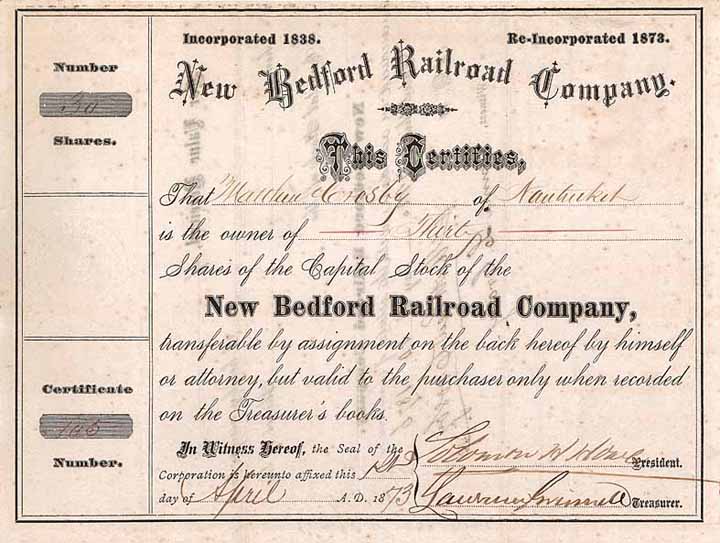 Incorporated 1838. Re-Incorporated 1873.
New Bedford Railroad Company.
Number
30
Shares.
This Certifies,
That Matthew Crosby of Nantucket
is the owner of Thirty
Shares of the Capital Stock of the
New Bedford Railroad Company,
transferable by assignment on the back hereof by himself
or attorney, but valid to the purchaser only when recorded
on the Treasurer's books.
Certificate
105
Number.
In Witness Hereof, the Seal of the
Corporation is hereunto affixed this
day of April A.D. 1873
President.
Lawrence Grinnell Treasurer.